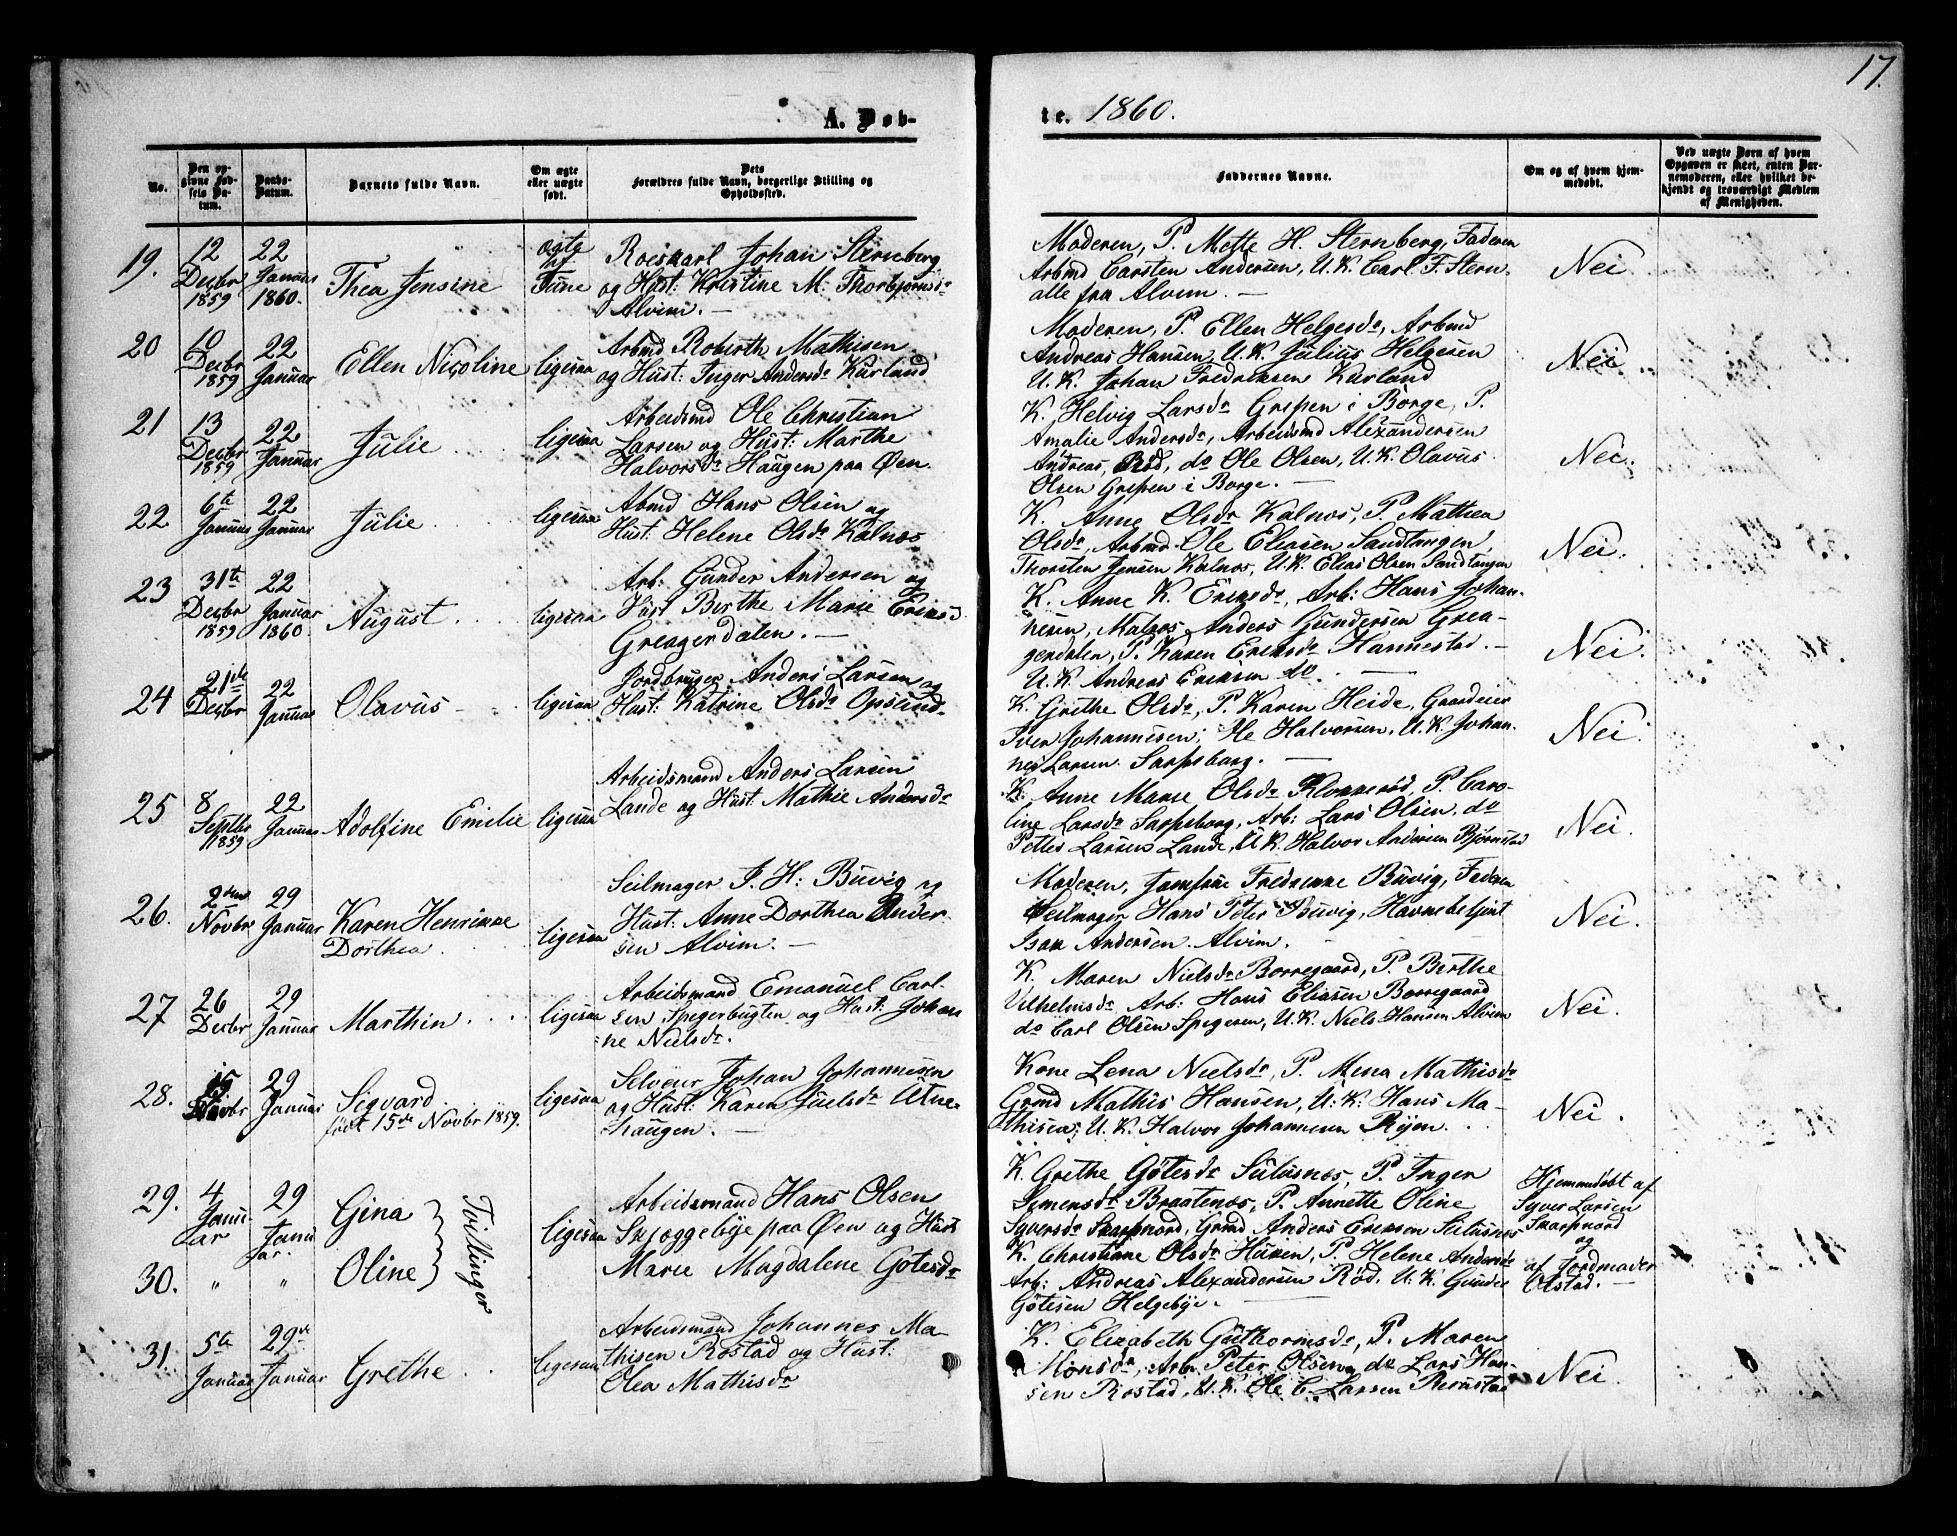 17.
A. Døb-
te. 1860.
No.
Den op-
givne Fød-
sels Da-
tum.
Daabs-
Datum.
Barnets fulde Navn.
Om ægte
eller uægte
født.
Dets
Forældres fulde Navn, borgerlige Stilling og
Opholdssted.
Faddernes Navne.
Om og af hvem hjem-
medøbt.
Ved uægte Børn af hvem
Opgaven er skeet, enten Bar-
nemoderen, eller hvilket be-
kjendt og troværdigt Medlem
af Menigheden.
19.
12
Decbr
1859
22
Januar
1860.
Thea Jensine
ægte
af
Tune
Johan Sternberg
og Hust: Kristine M. Thorbjørnsdr
Alvim. —
Moderen, P. Mette H. Sternberg, Faderen
Arbmd Carsten Andersen, U.K. Carl F. Stern.
alle fra Alvim. —
Nei
20
10
Decbr
1859
22
Januar
Ellen Nicoline
ligesaa
Arbmd Roberth Mathisen
og Hust: Inger Andersdr Kurland
Moderen, P. Ellen Helgesdr, Arbmd
Andreas Hansen, U.K. Julius Helgesen
U.K. Johan Fredriksen Kurland
Nei
21
13
Decbr
1859
22
Januar
Julie
ligesaa
Arbeidsmd Ole Christian
Larsen og Hust: Marthe
Halvorsdr Haugen paa Øen
K. Helvig Larsdr Grepen i Borge, P.
Amalie Andersdr, Arbeidsmd Alexandersen
Andreas, Rød, do Ole Olsen, U.K. Olavus
Olsen Grepen i Borge. —
Nei.
22
6te
Januar
22
Januar
Julie
ligesaa
Abmd Hans Olsen og
Hust. Helene Olsdr Kalnes
K. Anne Olsdr Kalnes, P. Mathea
Olsdr, Arbmd Ole Eliasen Sandtangen,
Thorsten Jensen Kalnes, U.K. Elias Olsen Sandtangen
Nei.
23
31te
Decbr
1859
22
Januar
1860.
August
ligesaa
Arb: Gunder Andersen og
Hust Berthe Marie Eriksd
Greagerdalen. —
K. Anne K. Eriksdr, Arb: Hans Johan-
nesen, Anders Gundersen Grea-
gerdalen, P. Karen Eriksdr Hannestad. —
U.K. Andreas Eriksen do. —
Nei.
24
21de
Decbr
22
Januar
Olavus —
ligesaa
Jordbruger Anders Larsen og
Hust: Katrine Olsdr Opsund.
K. Grethe Olsdr, P. Karen Heide, Gaardeier
Iver Johannesen, Ole Halvorsen, U.K. Johan-
nes Larsen. Sarpsborg. —
Nei.
25
8
Septbr
1859
22
Januar
Adolfine Emilie
ligesaa
Arbeidsmand Anders Larsen
Lande og Hust: Mathie Andersdr
K. Anne Marie Olsdr Klokkerød, P. Caro-
line Larsdr Sarpsborg, Arb: Lars Olsen, do
Petter Larsen Lande, U.K. Halvor Andersen Bjørnstad
Nei.
26.
Novbr
29
Januar
Karen Henrikke
Dorthea
ligesaa
Seilmager J. H: Buvig og
Hust: Anne Dorthea Ander
sen Alvim. —
Moderen, Jomfrue Fredrikke Buvig, Faderen
Seilmager Hans Peter Buvig, Havnebetjent
Isak Andersen. Alvim.
Nei.
27
26
Decbr
29
Januar
Marthin
ligesaa
Arbeidsmand Emanuel Carl-
sen Spigerbugten og Hust: Johan
ne Nielsdr.
K. Maren Nielsdr Borregaard, P. Berthe
Vilhelmsdr, Arb: Hans Eliasen Borregaard
do Carl Olsen Spigeren, U.K. Niels Hansen Alvim
Nei.
28.
15
Novbr
29
Januar
Sigvard
født 15de Novbr 1859.
ligesaa
Selveier Johan Johannesen
og Hust: Karen Juelsdr Utne-
haugen. —
Kone Lena Nielsdr, P. Mina Mathisdr
Grmd Mathis Hansen, U:K: Hans Ma-
thisen, U.K. Halvor Johannesen Ryen.
Nei.
29.
4
Janu-
ar
29
Janu
ar.
Gina
Tvillinger
30.
"
"
Oline
ligesaa
Arbeidsmand Hans Olsen
Skjøggebye paa Øen og Hust
Marie Magdalene Gøtesdr
K. Grethe Gøtesdr Sulusnes, P. Inger
Simensdr Braatenes, P. Annette Oline
Syversdr Skarpnord, Grmd Anders Eriksen Sulusnes
K. Christiane Olsdr Huken, P. Helene Andersdr
Arb: Andreas Alexandersen Rød. U:K. Gunder
Gøtesen Helgebye.
Hjemmedøbt af
Syver Larsen
Skarpnord
og
af Jordmoder
Olstad. —
31.
5te
Januar
29de
Januar
Grethe
ligesaa
Arbeidsmand Johannes Ma-
thisen Rostad og Hust:
Olea Mathisdr
K. Elizabeth Guthormsdr, P. Maren
Monsdr, Arb. Peter Olsen, do Lars Han-
sen Rostad, U.K. Ole C. Larsen
Nei.